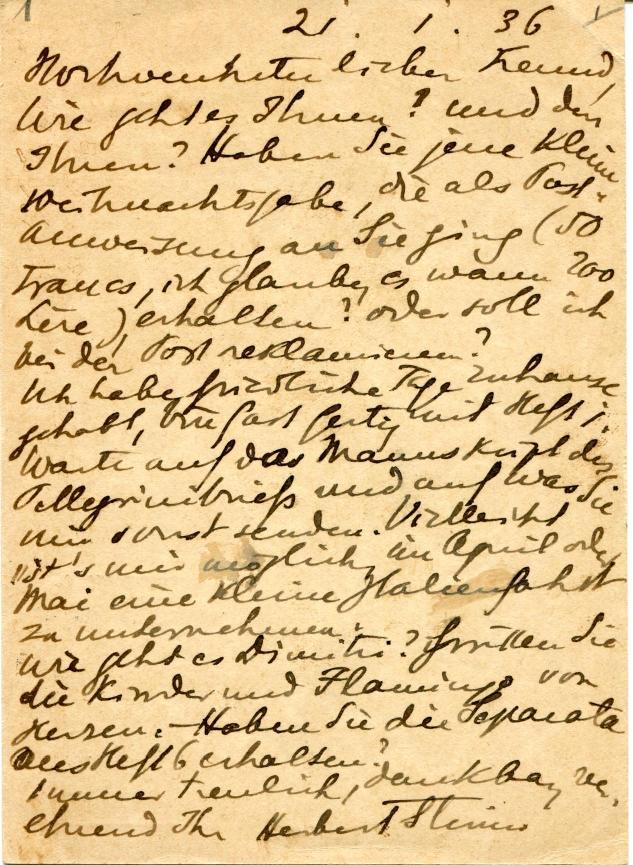 21. 1. 36
lieber Freund,
Wie geht es Ihnen? und den
Ihren? Haben Sie jene kleine
Weihnachtsgabe, die als Post-
anweisung an Sie ging (50
Francs, ich glaube, es waren 200
Lire) erhalten? oder soll ich
bei der Post reklamieren?
Ich habe friedliche Tage zuhause
gehabt, bin fast fertig mit Heft 1.
Warte auf das Manuskript des
Pellegrinibriefs und auf was Sie
mir sonst senden. Vielleicht
ist's mir möglich, im April oder
Mai eine kleine Italienfahrt
zu unternehmen.
Wie geht es Dimitri? Grüßen Sie
die Kinder und Flamingo von
Herzen. – Haben Sie die Separata
aus Heft 6 erhalten?
Immer treulich, dankbar, ver-
ehrend Ihr Herbert Steiner